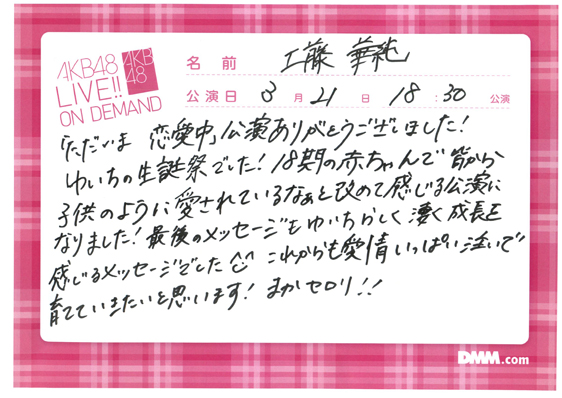 AKB48
LIVE!!
ON DEMAND
AKB
48
名前 工藤 華純
公演日 3月21日 18:30公演
「ただいま 恋愛中」公演ありがとうございました!
ゆいちの生誕祭でした!18期の赤ちゃんで皆から
子供のように愛されているなぁと改めて感じる公演に
なりました!最後のメッセージもゆいちらしく凄く成長を
感じるメッセージでした^^ これからも愛情いっぱい注いで
育てていきたいと思います!まかセロリ!!
DMM.com